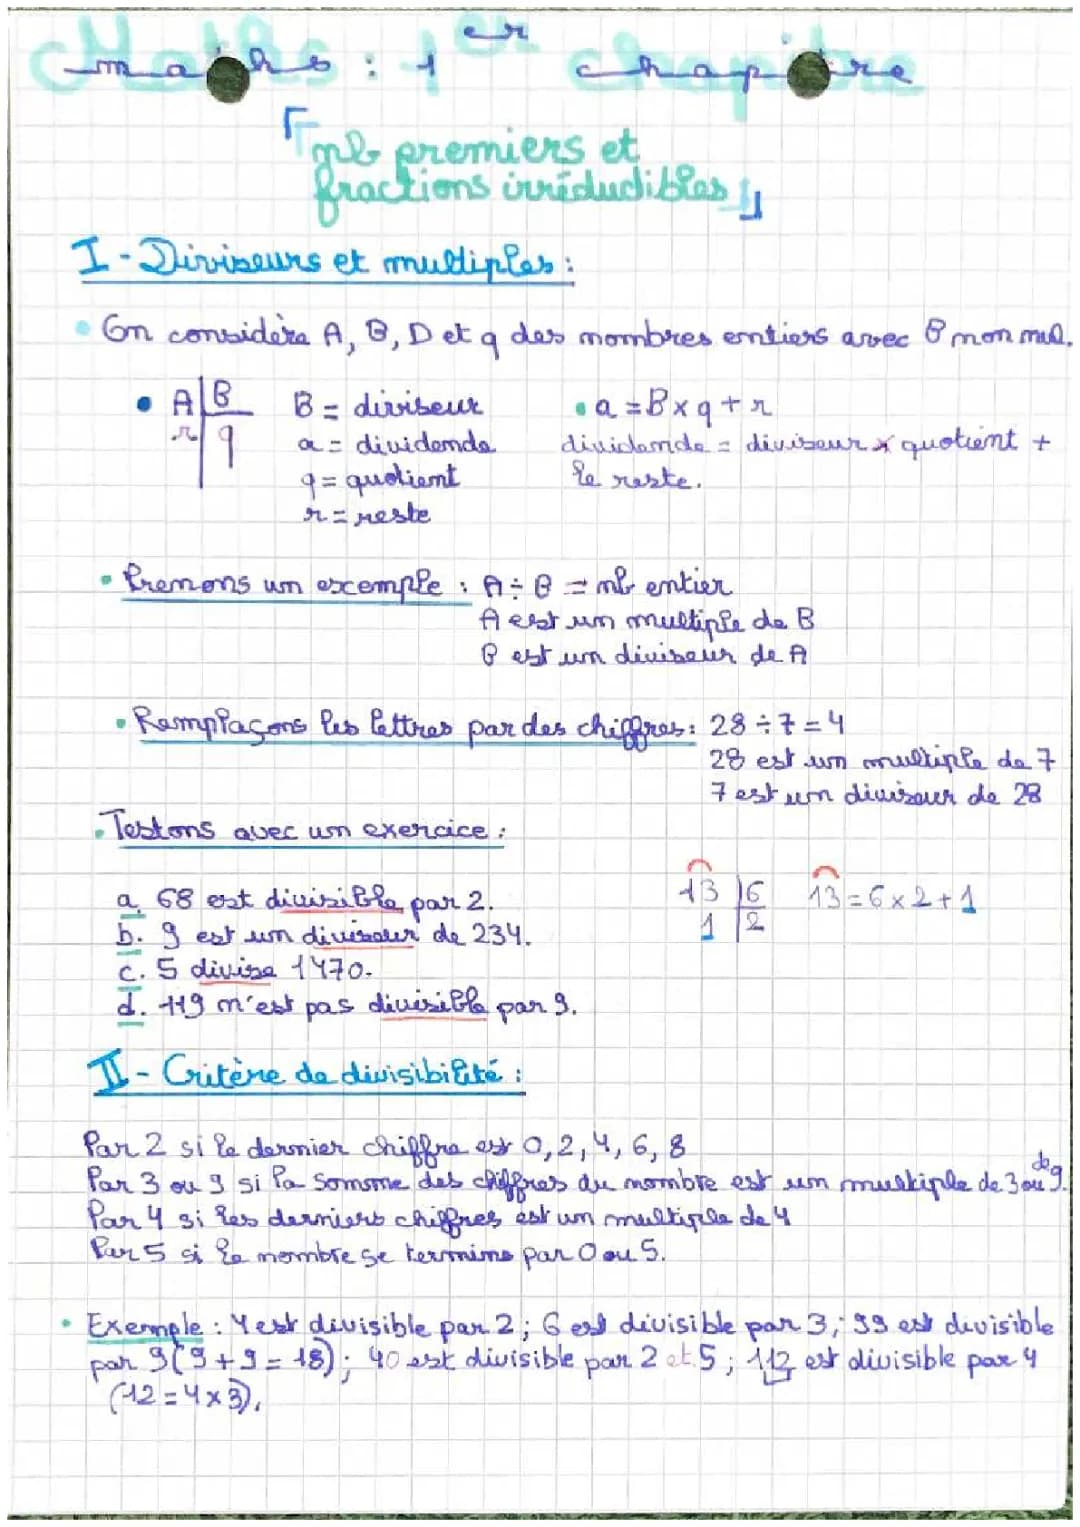 Maths : 1er chapitre
「nb premiers et
fractions irrédudibles」
I - Diviseurs et multiples :
• On considère A, B, D et q des nombres entiers avec B non nul.
• A | B
r | q
B = diviseur
a = dividende
q = quotient
r = reste
• a = B x q + r
dividende = diviseur x quotient +
le reste.
• Prenons un exemple : A ÷ B = nb entier
A est un multiple de B
B est un diviseur de A
• Remplaçons les lettres par des chiffres : 28 ÷ 7 = 4
28 est un multiple de 7
7 est un diviseur de 28
• Testons avec un exercice :
a. 68 est divisible par 2.
b. 9 est un diviseur de 234.
c. 5 divise 1470.
d. 119 n'est pas divisible par 9.
13 | 6
1 | 2
13 = 6 x 2 + 1
II - Critère de divisibilité :
Par 2 si le dernier chiffre est 0, 2, 4, 6, 8
Par 3 ou 9 si la somme des chiffres du nombre est un multiple de 3 ou de 9.
Par 4 si les derniers chiffres est un multiple de 4
Par 5 si le nombre se termine par 0 ou 5.
• Exemple : 4 est divisible par 2 ; 6 est divisible par 3 ; 99 est divisible
par 9 (9 + 9 = 18) ; 40 est divisible par 2 et 5 ; 112 est divisible par 4
(12 = 4 x 3).